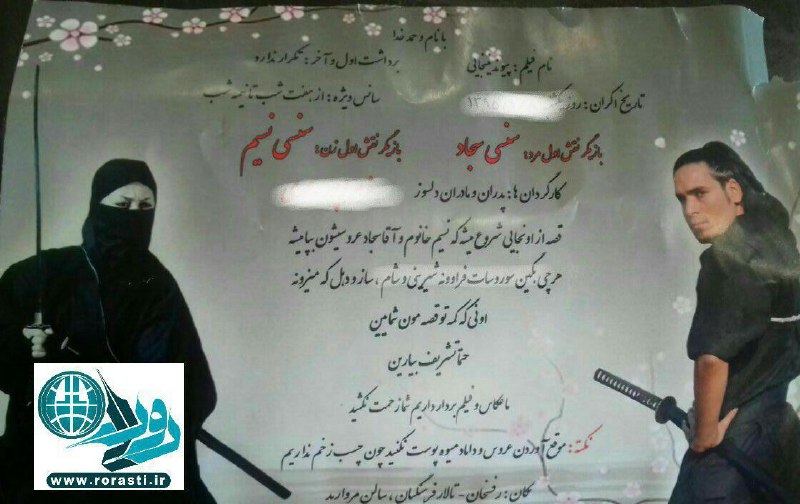 با نام و حمد خدا
نام فیلم : پیوند نینجایی
برداشت اول و آخر : تکرار ندارد
تاریخ اکران : روز
سانس ویژه : از هفت شب تا نیمه شب
بازیگر نقش اول مرد: سنسی سجاد
بازیگر نقش اول زن: سنسی نسیم
کارگردان ها: پدران و مادران دلسوز
قصه از اونجایی شروع میشه که نسیم خانوم و آقا سجاد عروسیشون بپا میشه
هرچی بگین سور و سات فراوونه شیرینی و شام ، ساز و دهل که میزونه
اونی که کمه تو قصه مون شمایین
حتما تشریف بیارین
ما عکاس و فیلم بردار داریم شما زحمت نکشید
نکته: موقع آوردن عروس و داماد میوه پوست نکنید چون چسب زخم نداریم
مکان: رفسنجان - تالار فرهنگیان ، سالن مروارید
دوراستی
www.rorasti.ir